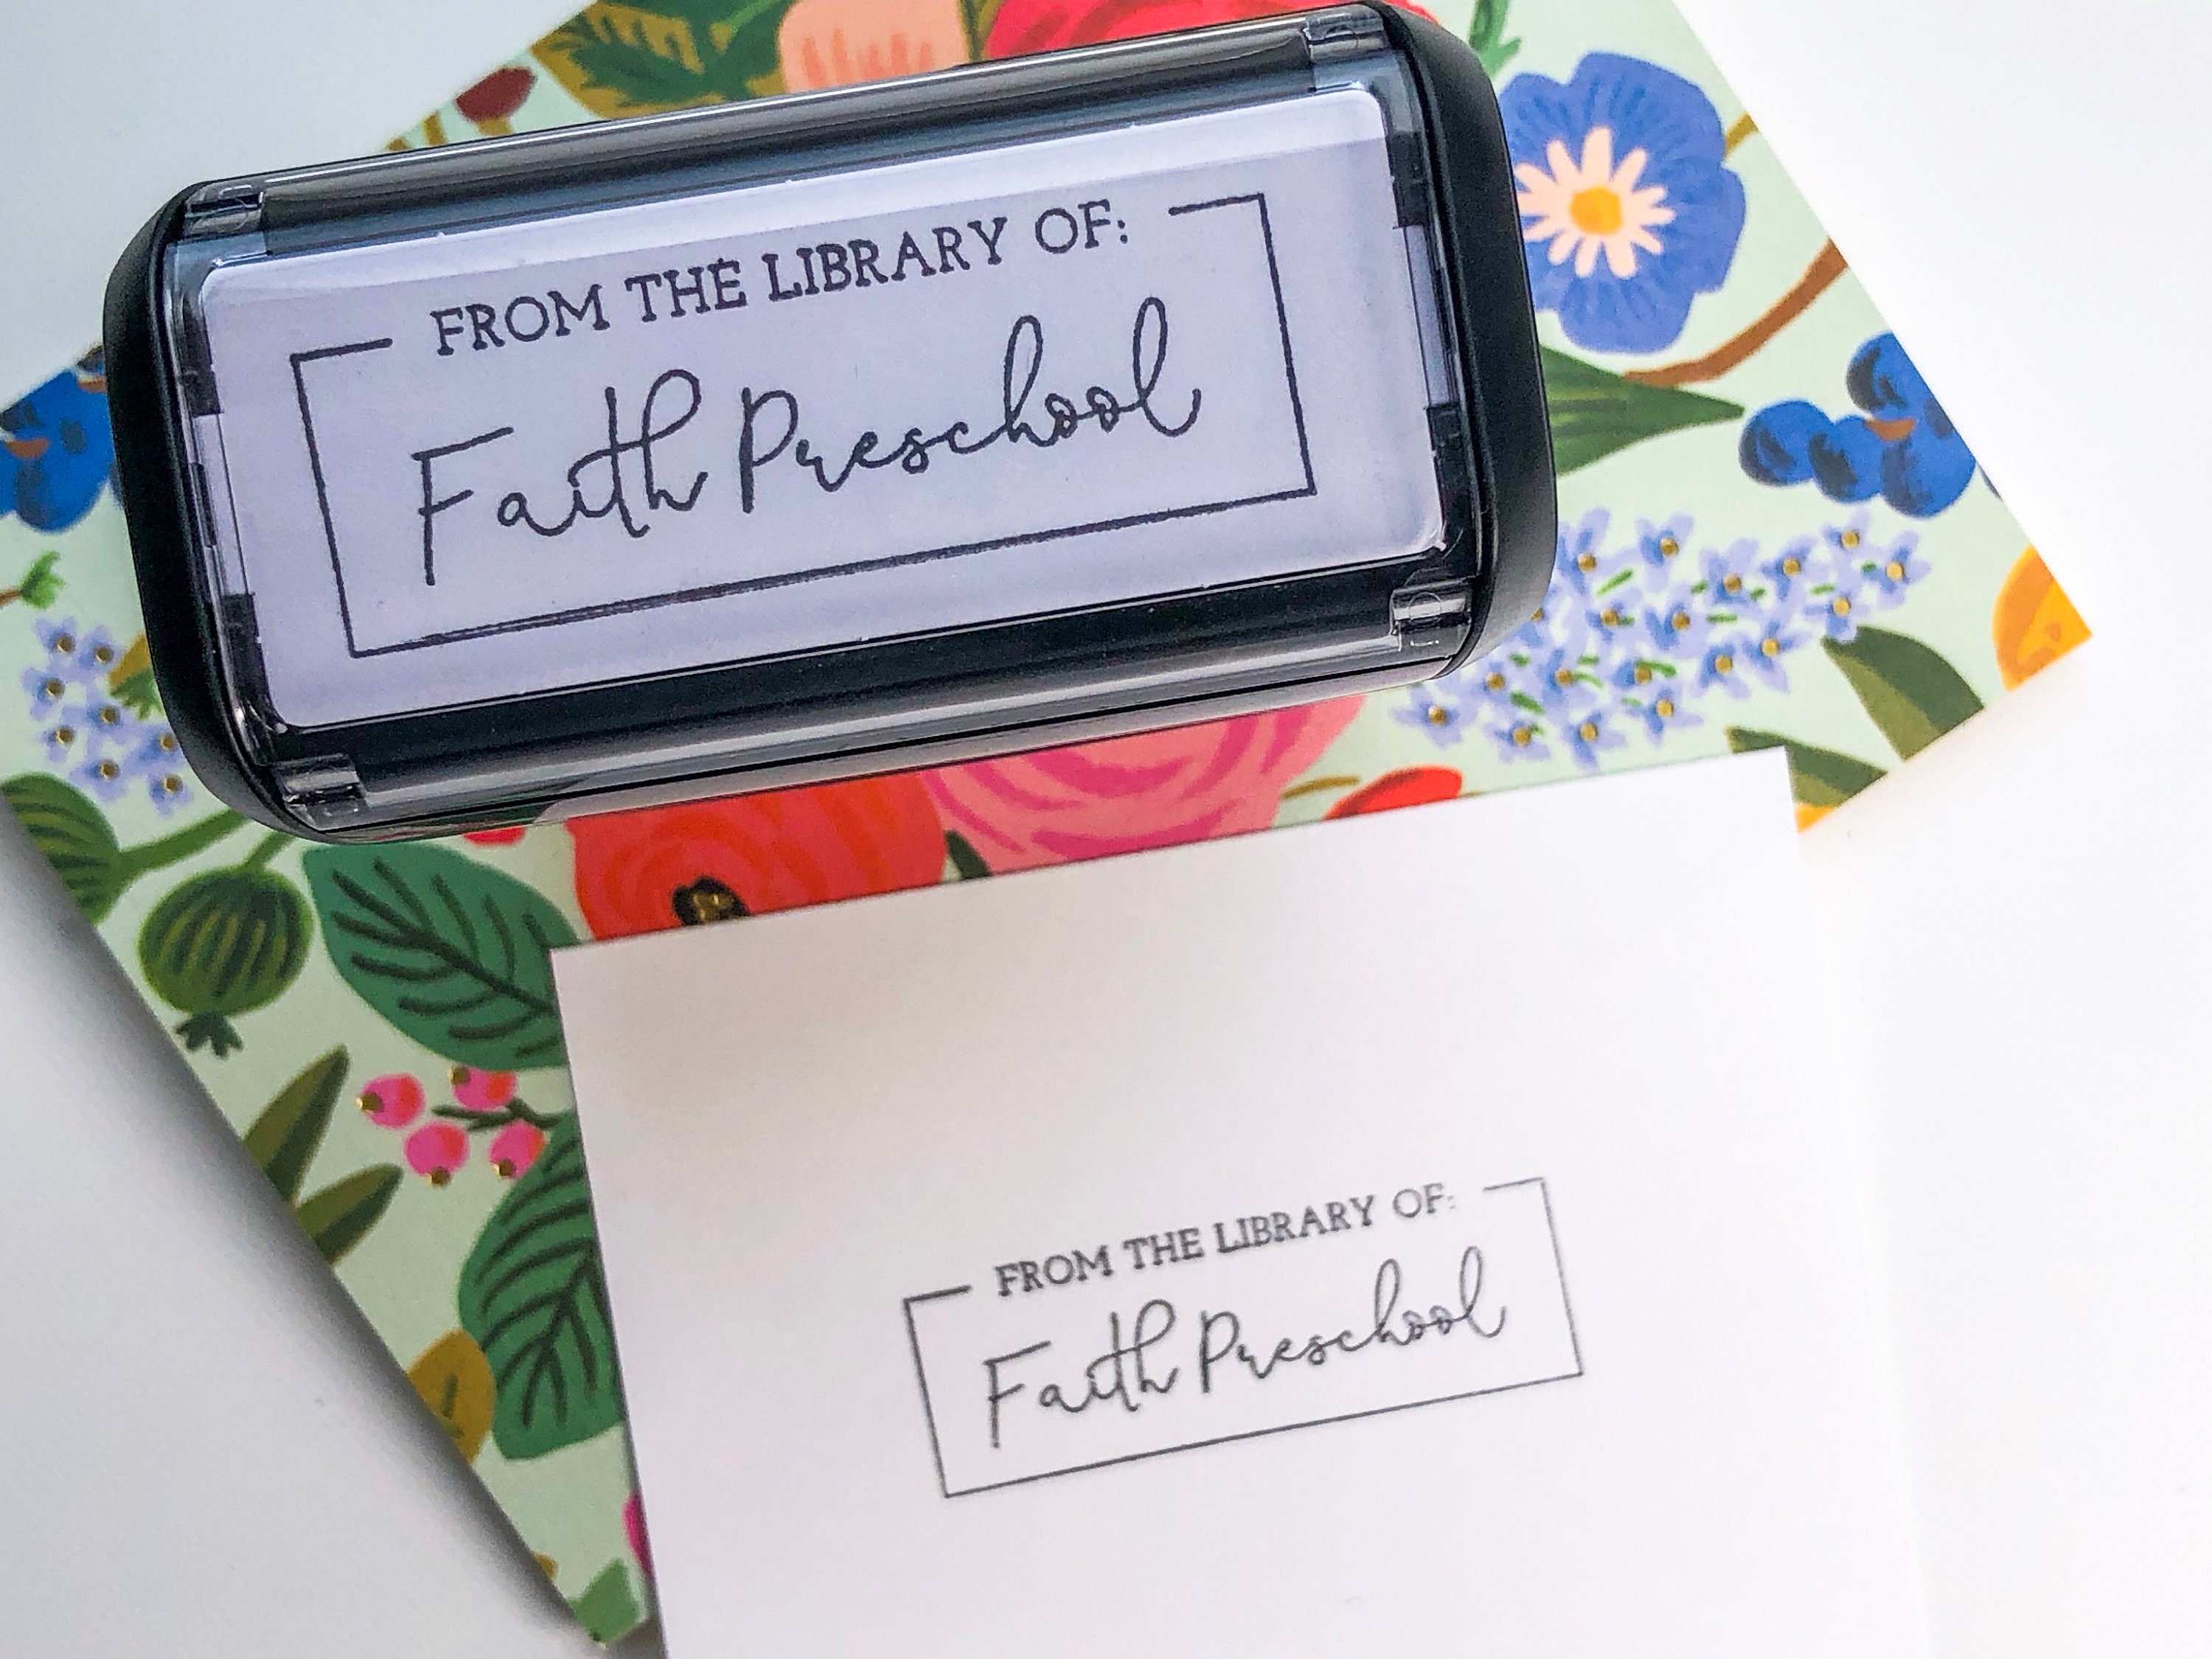 FROM THE LIBRARY OF:
Faith Preschool
FROM THE LIBRARY OF:
Faith Preschool